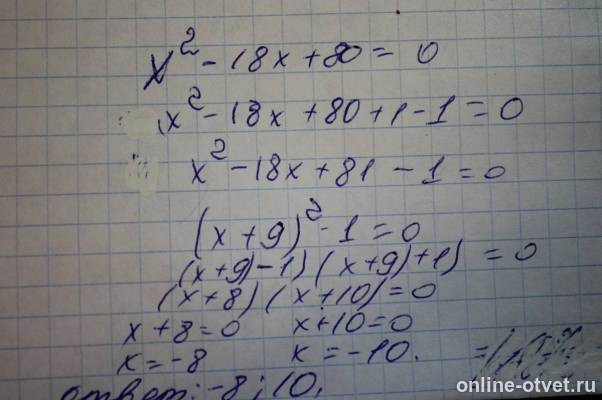 x² - 18x + 80 = 0
x² - 18x + 80 + 1 - 1 = 0
x² - 18x + 81 - 1 = 0
(x + 9)² - 1 = 0
(x + 9) - 1) (x + 9) + 1) = 0
(x + 8) (x + 10) = 0
x + 8 = 0 x + 10 = 0
x = -8 x = -10.
ответ: -8; 10.
online-otvet.ru